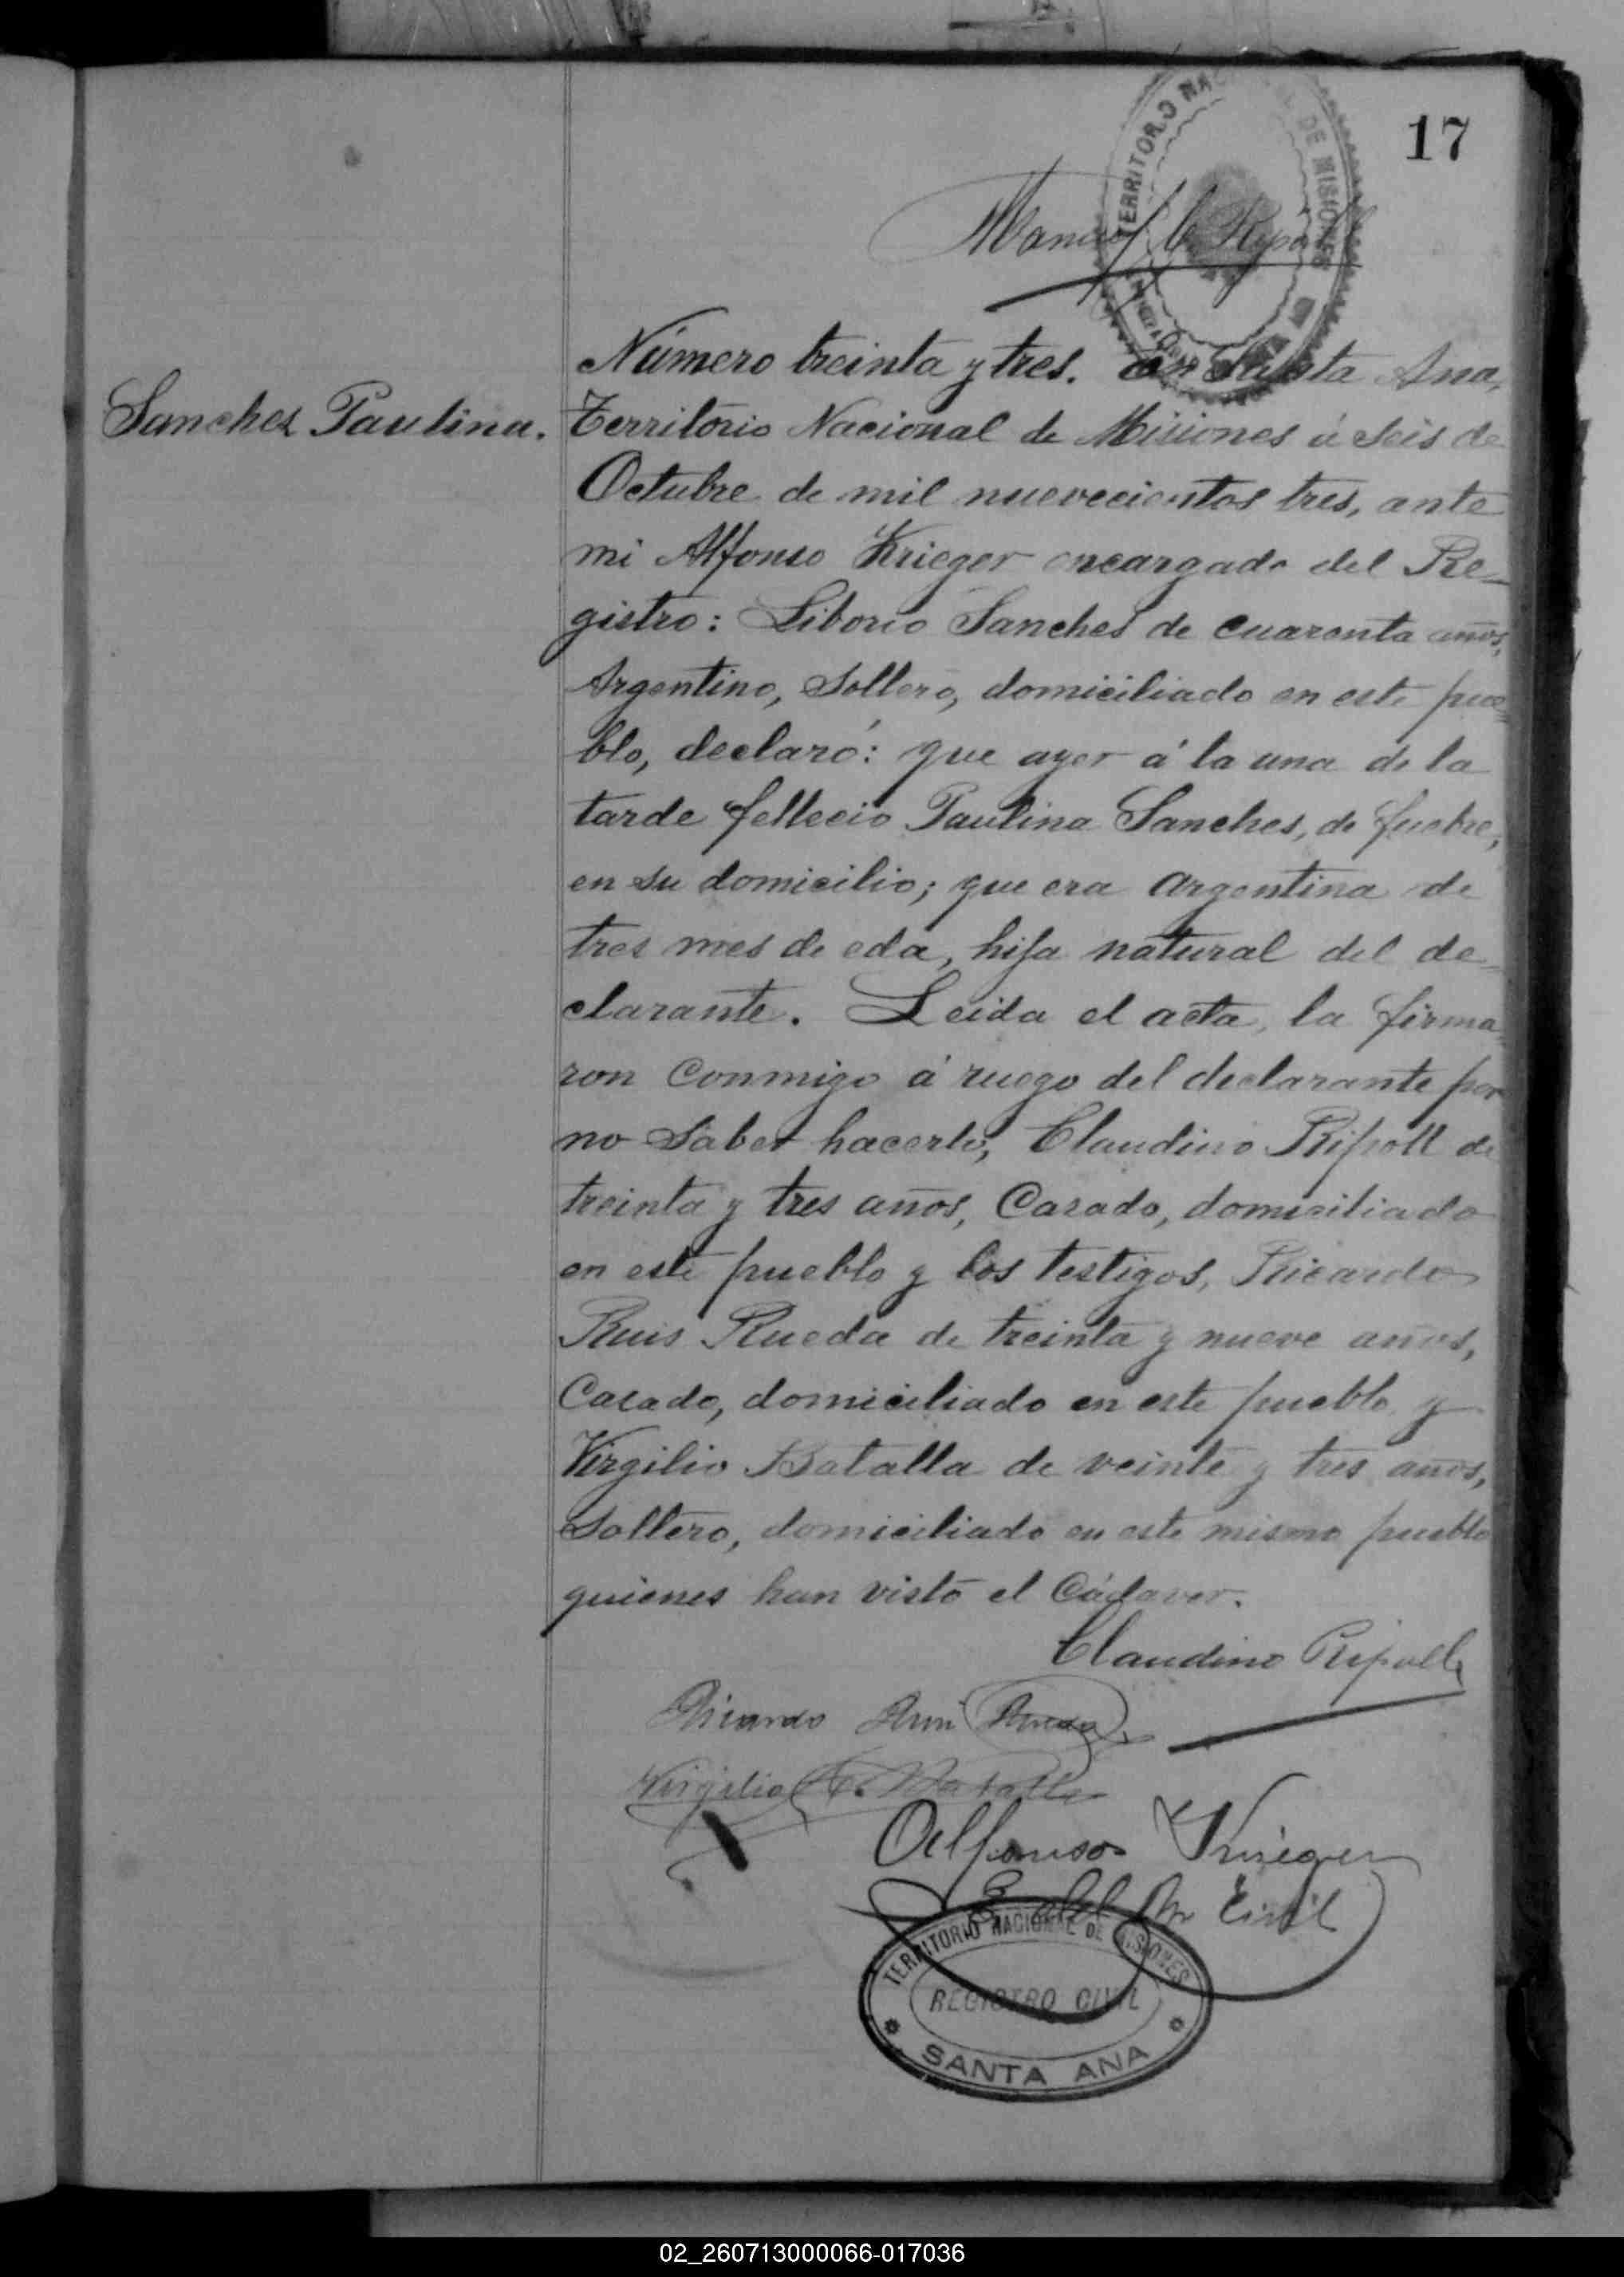 17
TERRITORIO NAC DE MISIONES
Número treinta y tres. En Santa Ana,
Sanches Paulina.
Territorio Nacional de Misiones á seis de
Octubre de mil nuevecientos tres, ante
mi Alfonso Krieger encargado del Re-
gistro: Liborio Sanches de cuarenta años,
Argentino, Soltero, domiciliado en este pue-
blo, declaró: que ayer á la una de la
tarde fellecio Paulina Sanches, de fuebre,
en su domicilio; que era Argentina de
tres mes de eda, hija natural del de-
clarante. Leida el acta, la firma-
ron Conmigo á ruego del declarante por
no Saber hacerlo, Claudino Ripoll de
treinta y tres años, Casado, domiciliado
en este pueblo y los testigos, Ricardo
Ruis Rueda de treinta y nueve años,
Casado, domiciliado en este pueblo y
Virgilio Batalla de veinte y tres años,
Soltero, domiciliado en este mismo pueblo
quienes han visto el Cádaver.
Claudino Ripoll
Ricardo Ruis Rueda
Virgilio Batalla
Alfonso Krieger
del Civil
TERRITORIO NACIONAL DE MISIONES
REGISTRO CIVIL
SANTA ANA
02_260713000066-017036